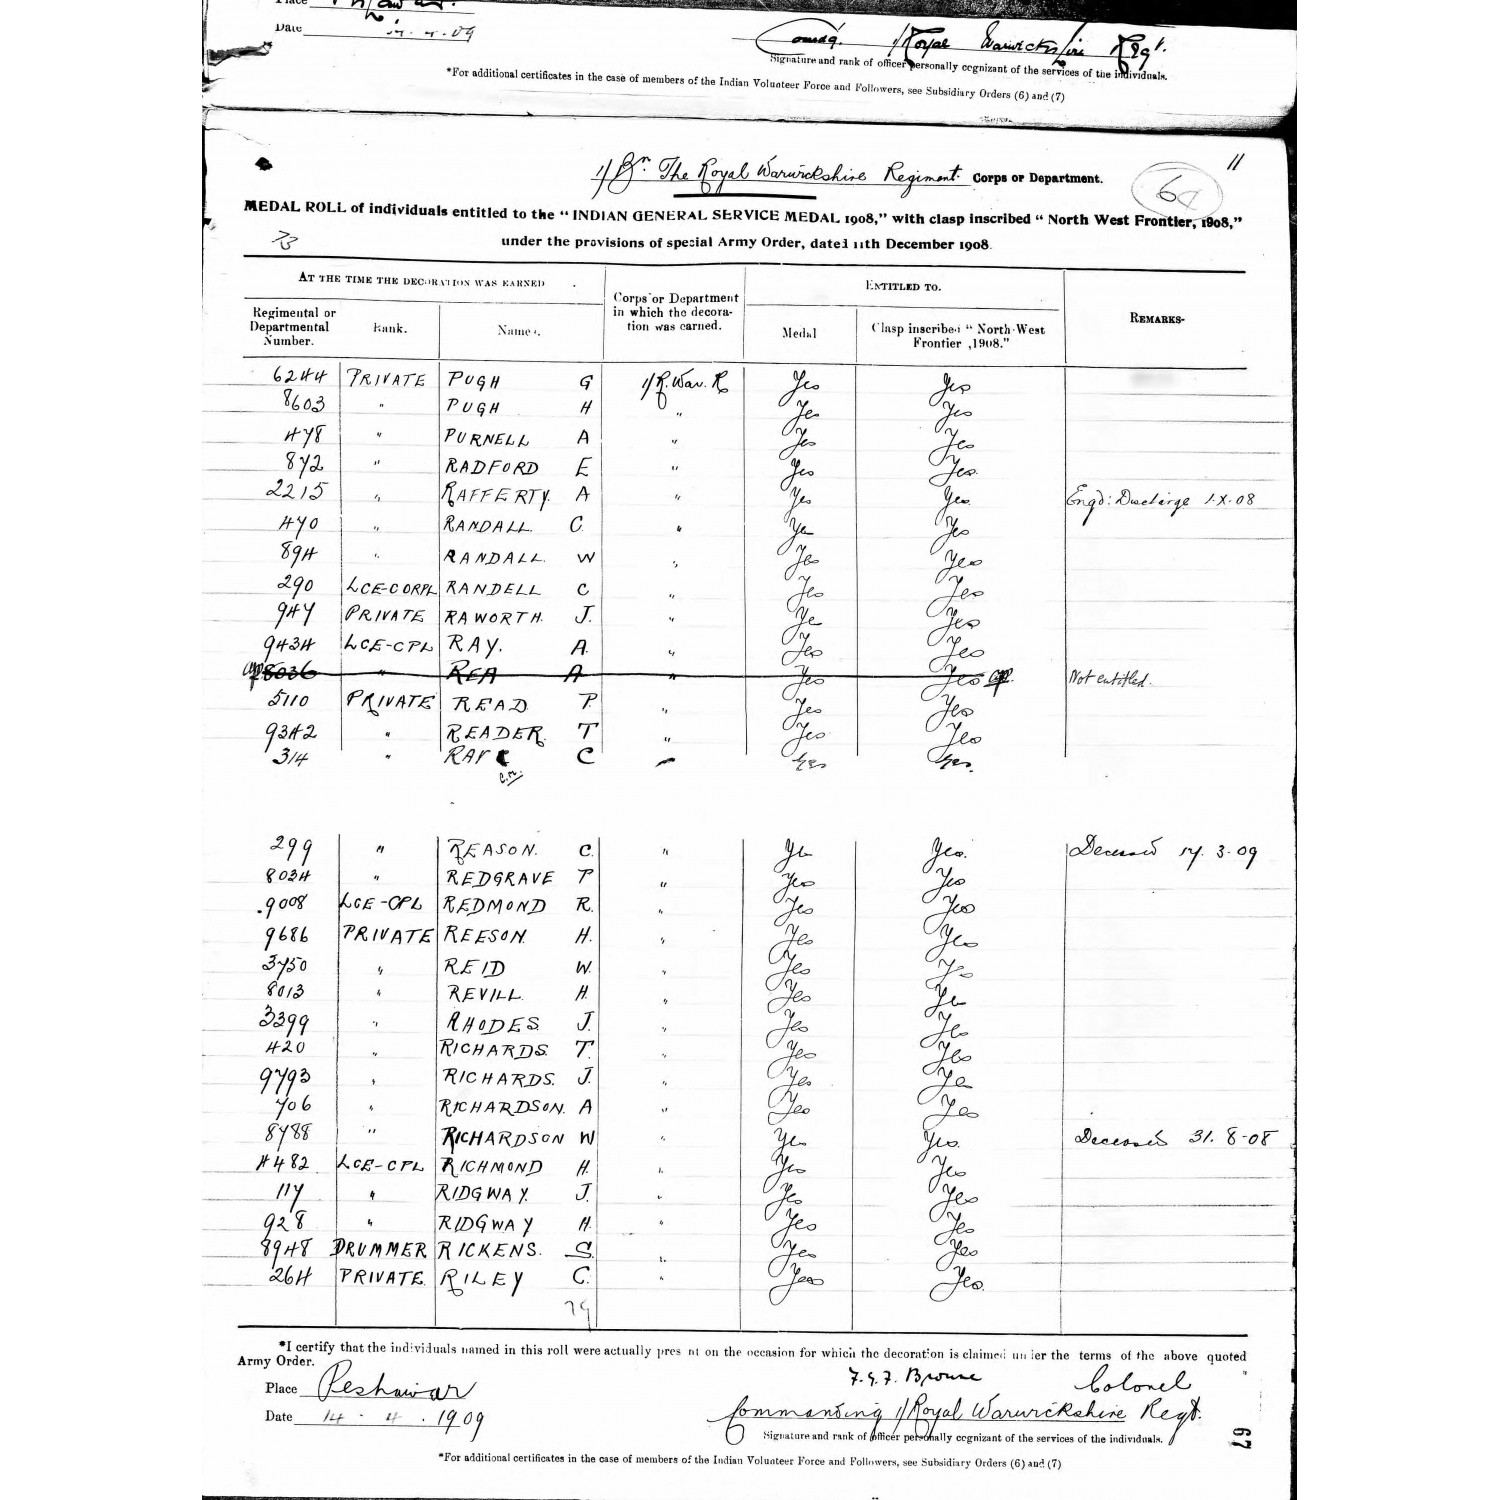 Place
Date 4.09
Comdg. 1/Royal Warwickshire Regt.
Signature and rank of officer personally cognizant of the services of the individuals.
*For additional certificates in the case of members of the Indian Volunteer Force and Followers, see Subsidiary Orders (6) and (7)
11
1/Bn. The Royal Warwickshire Regiment. Corps or Department.
MEDAL ROLL of individuals entitled to the "INDIAN GENERAL SERVICE MEDAL 1908," with clasp inscribed "North West Frontier, 1908,"
under the provisions of special Army Order, dated 11th December 1908.
AT THE TIME THE DECORATION WAS EARNED Corps or Department in which the decoration was earned. ENTITLED TO. REMARKS-
Regimental or Departmental Number. Rank. Names. Medal Clasp inscribed "North-West Frontier, 1908."
6244 PRIVATE PUGH G 1/R. War. R Yes Yes
8603 " PUGH H " Yes Yes
478 " PURNELL A " Yes Yes
872 " RADFORD E " Yes Yes
2215 " RAFFERTY. A " Yes Yes Engd: Discharge 1.X.08
470 " RANDALL. C. " Yes Yes
894 " RANDALL. W " Yes Yes
290 LCE-CORPL RANDELL C " Yes Yes
947 PRIVATE RAWORTH. J. " Yes Yes
9434 LCE-CPL RAY. A. " Yes Yes
8036 " REA A " Yes Yes Not entitled.
5110 PRIVATE READ P. " Yes Yes
9342 " READER. T " Yes Yes
314 " RAY C " Yes Yes.
299 " REASON. C. " Yes Yes. Deceased 17.3.09
8034 " REDGRAVE P " Yes Yes
9008 LCE-CPL REDMOND R. " Yes Yes
9686 PRIVATE REESON. H. " Yes Yes
3750 " REID W. " Yes Yes
8013 " REVILL. H. " Yes Yes
3399 " RHODES. J. " Yes Yes
420 " RICHARDS. T. " Yes Yes
9793 " RICHARDS. J. " Yes Yes
706 " RICHARDSON. A " Yes Yes
8788 " RICHARDSON W " Yes Yes. Deceased 31.8-08
4482 LCE-CPL RICHMOND H. " Yes Yes
117 " RIDGWAY. J. " Yes Yes
928 " RIDGWAY H. " Yes Yes
8948 DRUMMER RICKENS. S. " Yes Yes
264 PRIVATE. RILEY C. " Yes Yes.
*I certify that the individuals named in this roll were actually present on the occasion for which the decoration is claimed under the terms of the above quoted
Army Order.
F.G.F. Browne Colonel
Place Peshawar
Commanding 1/Royal Warwickshire Regt.
Date 14.4.1909
Signature and rank of officer personally cognizant of the services of the individuals.
67
*For additional certificates in the case of members of the Indian Volunteer Force and Followers, see Subsidiary Orders (6) and (7)